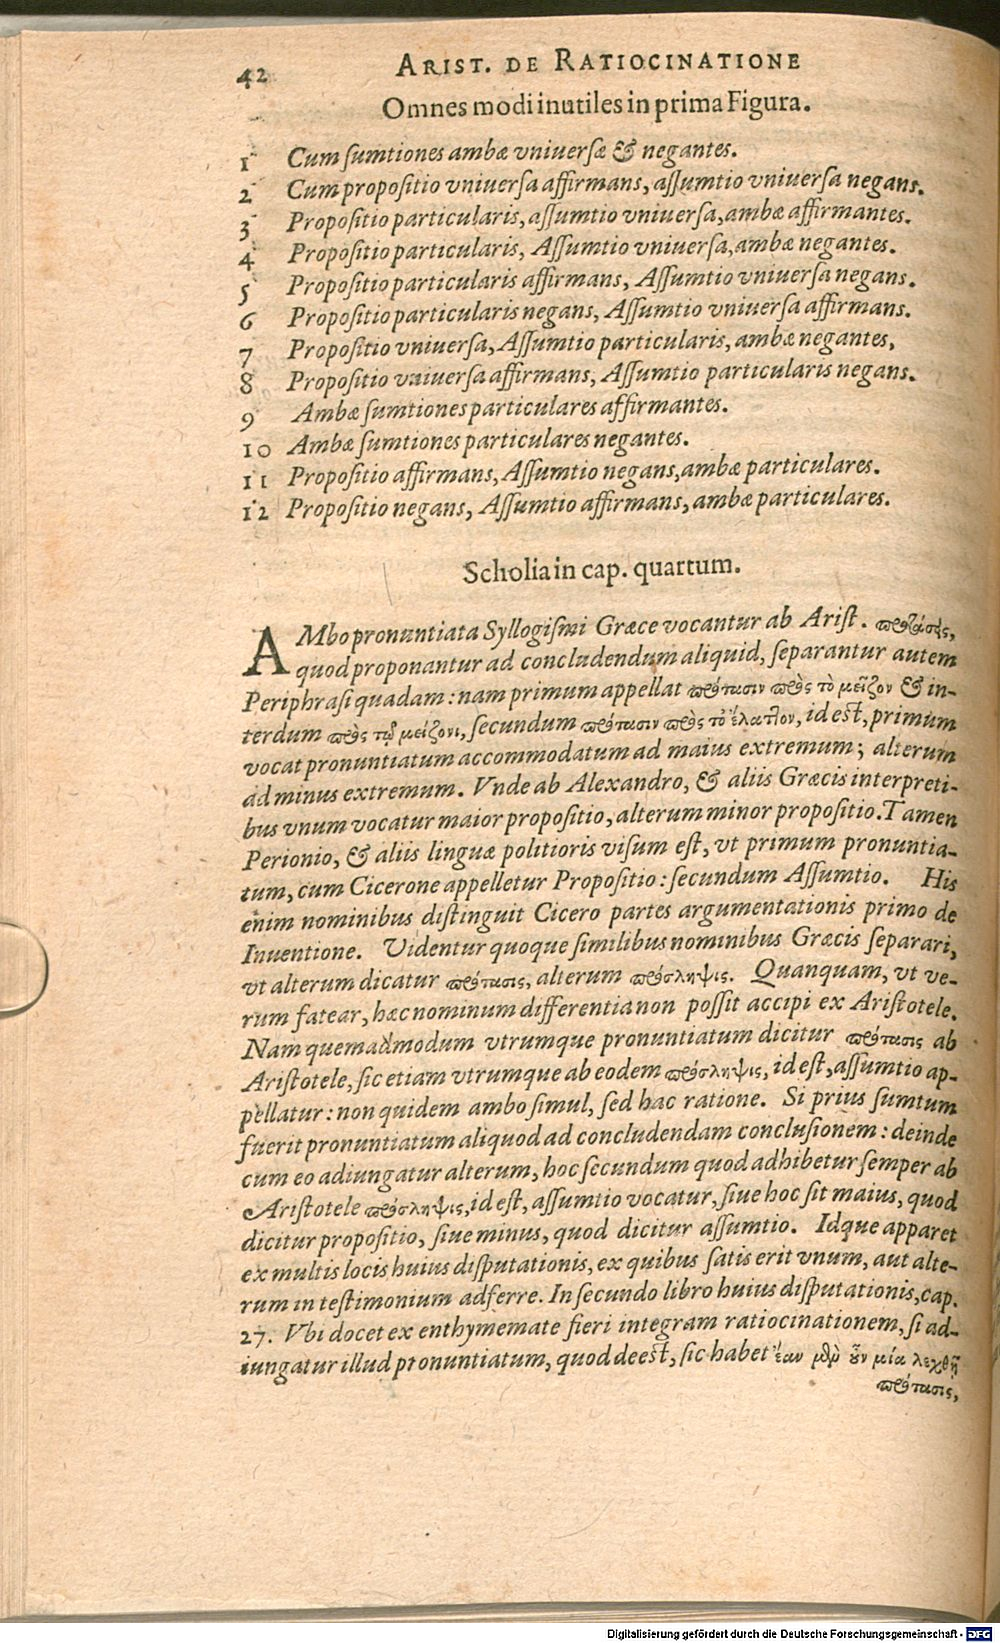 42 ARIST. DE RATIOCINATIONE
Omnes modi inutiles in prima Figura.
1 Cum sumtiones ambæ vniuersæ & negantes.
2 Cum propositio vniuersa affirmans, assumtio vniuersa negans.
3 Propositio particularis, assumtio vniuersa, ambæ affirmantes.
4 Propositio particularis, Assumtio vniuersa, ambæ negantes.
5 Propositio particularis affirmans, Assumtio vniuersa negans.
6 Propositio particularis negans, Assumtio vniuersa affirmans.
7 Propositio vniuersa, Assumtio particularis, ambæ negantes,
8 Propositio vniuersa affirmans, Assumtio particularis negans.
9 Ambæ sumtiones particulares affirmantes.
10 Ambæ sumtiones particulares negantes.
11 Propositio affirmans, Assumtio negans, ambæ particulares.
12 Propositio negans, Assumtio affirmans, ambæ particulares.
Scholia in cap. quartum.
AMbo pronuntiata Syllogismi Græce vocantur ab Arist. προτάσεις,
quod proponantur ad concludendum aliquid, separantur autem
Periphrasi quadam: nam primum appellat πρότασιν πρὸς τὸ μεῖζον & in-
terdum πρὸς τῷ μείζονι, secundum πρότασιν πρὸς τὸ ἔλαττον, id est, primum
vocat pronuntiatum accommodatum ad maius extremum; alterum
ad minus extremum. Vnde ab Alexandro, & aliis Græcis interpreti-
bus vnum vocatur maior propositio, alterum minor propositio. Tamen
Perionio, & aliis linguæ politioris visum est, vt primum pronuntia-
tum, cum Cicerone appelletur Propositio: secundum Assumtio. His
enim nominibus distinguit Cicero partes argumentationis primo de
Inuentione. Uidentur quoque similibus nominibus Græcis separari,
vt alterum dicatur πρότασις, alterum πρόσληψις. Quanquam, vt ve-
rum fatear, hæc nominum differentia non possit accipi ex Aristotele.
Nam quemadmodum vtrumque pronuntiatum dicitur πρότασις ab
Aristotele, sic etiam vtrumque ab eodem πρόσληψις, id est, assumtio ap-
pellatur: non quidem ambo simul, sed hac ratione. Si prius sumtum
fuerit pronuntiatum aliquod ad concludendam conclusionem: deinde
cum eo adiungatur alterum, hoc secundum quod adhibetur semper ab
Aristotele πρόσληψις, id est, assumtio vocatur, siue hoc sit maius, quod
dicitur propositio, siue minus, quod dicitur assumtio. Idque apparet
ex multis locis huius disputationis, ex quibus satis erit vnum, aut alte-
rum in testimonium adferre. In secundo libro huius disputationis, cap.
27. Vbi docet ex enthymemate fieri integram ratiocinationem, si ad-
iungatur illud pronuntiatum, quod deest, sic habet ἐαν μὲν οὖν μία λεχθῇ
πρότασις,
Digitalisierung gefördert durch die Deutsche Forschungsgemeinschaft - DFG